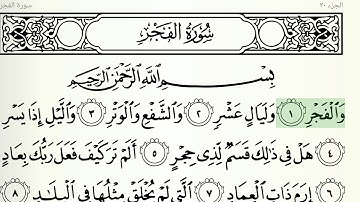 الجزء ٣٠
سورة الفجر
سُورَةُ الفَجْرِ
بِسْمِ اللَّهِ الرَّحْمَٰنِ الرَّحِيمِ
وَالْفَجْرِ ١ وَلَيَالٍ عَشْرٍ ٢ وَالشَّفْعِ وَالْوَتْرِ ٣ وَاللَّيْلِ إِذَا يَسْرِ
٤ هَلْ فِي ذَٰلِكَ قَسَمٌ لِّذِي حِجْرٍ ٥ أَلَمْ تَرَ كَيْفَ فَعَلَ رَبُّكَ بِعَادٍ
٦ إِرَمَ ذَاتِ الْعِمَادِ ٧ الَّتِي لَمْ يُخْلَقْ مِثْلُهَا فِي الْبِلَادِ ٨